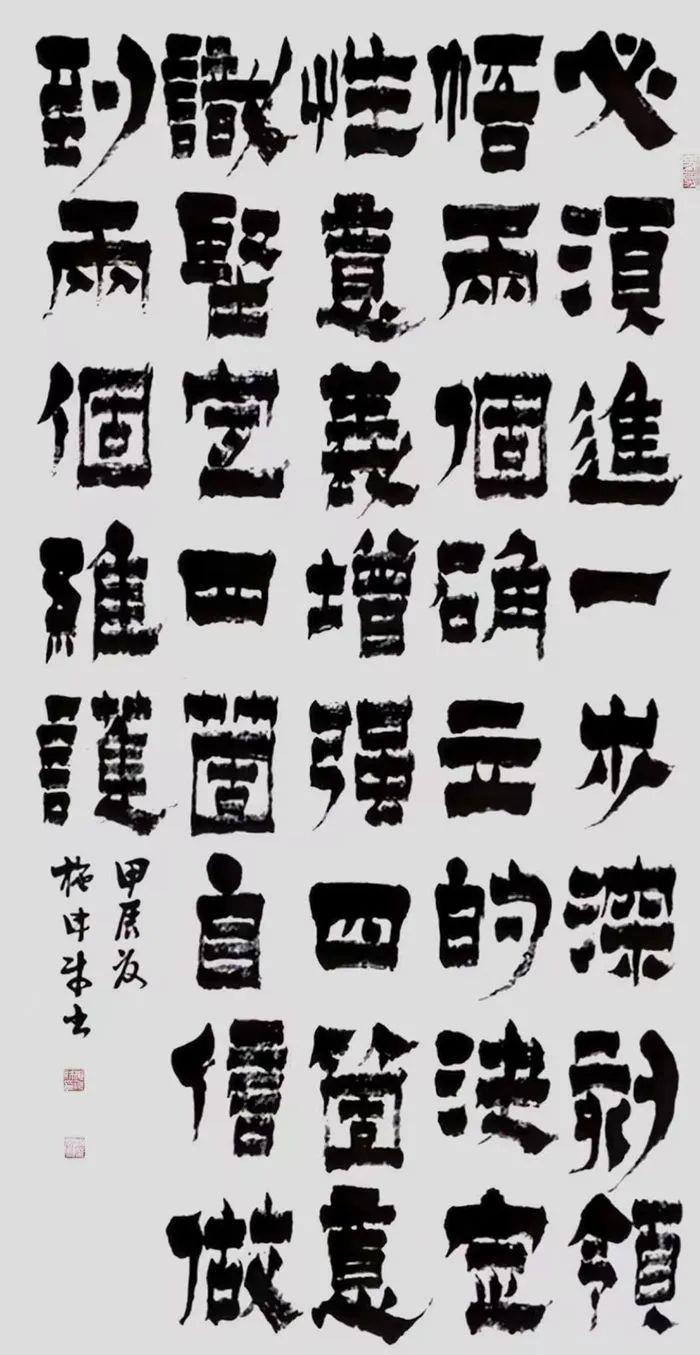 必須進一步深刻領
悟兩個确立的決定
性意義增强四箇意
識堅定四箇自信做
到兩個維護
甲辰夏
施中書